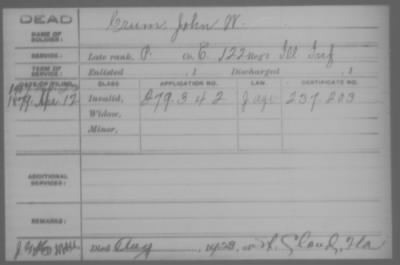 DEAD
NAME OF SOLDIER: Crum, John W.
SERVICE: Late rank, P. Co. C, 122 Reg't Ill Inf
TERM OF SERVICE: Enlisted , 1 Discharged , 1
DATE OF FILING. CLASS APPLICATION NO. LAW. CERTIFICATE NO.
1879, Apr. 12 Invalid, 279.342 237.203
Widow,
Minor,
ADDITIONAL SERVICES:
REMARKS:
Died Aug , 1928, at St. Cloud, Fla